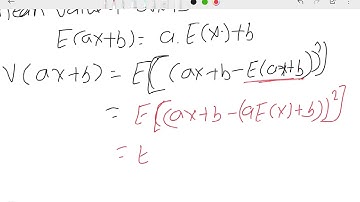 E(ax+b) = a.E(x)+b
V(ax+b) = E[(ax+b-E(ax+b))²]
= E[(ax+b-(aE(x)+b))²]
= E